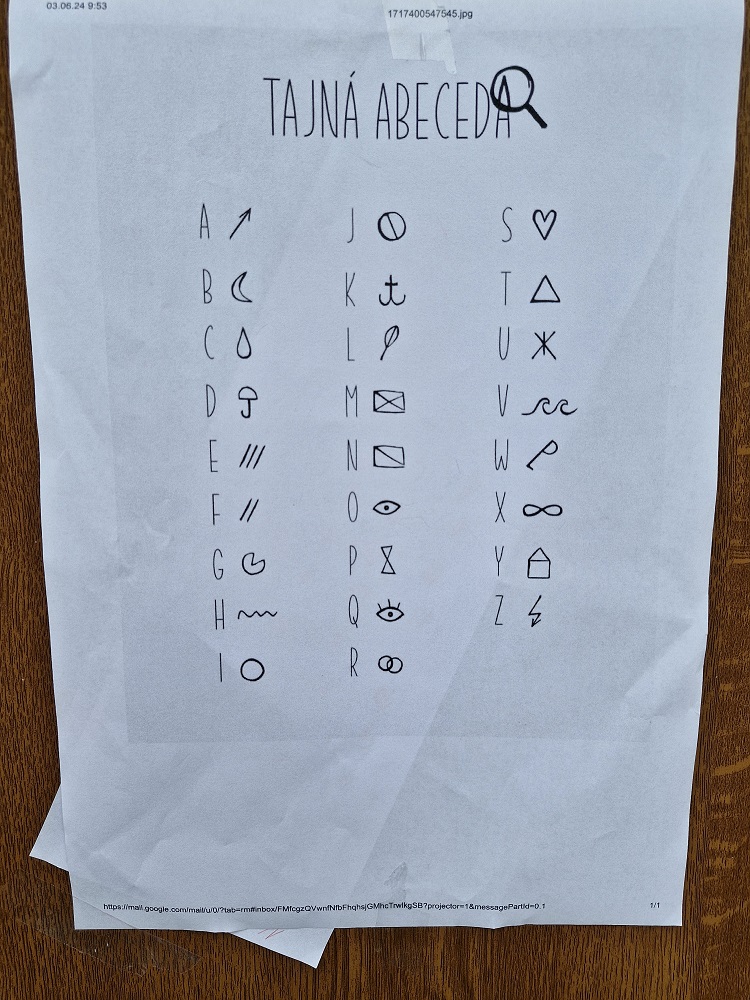 03.06.24 9:53 1717400547545.jpg
TAJNÁ ABECEDA
A J S
B K T
C L U
D M V
E N W
F O X
G P Y
H Q Z
I R
https://mail.google.com/mail/u/0/?tab=rm#inbox/FMfcgzQVwnfNfbFhqhsjGMhcTrwlkgSB?projector=1&messagePartId=0.1 1/1